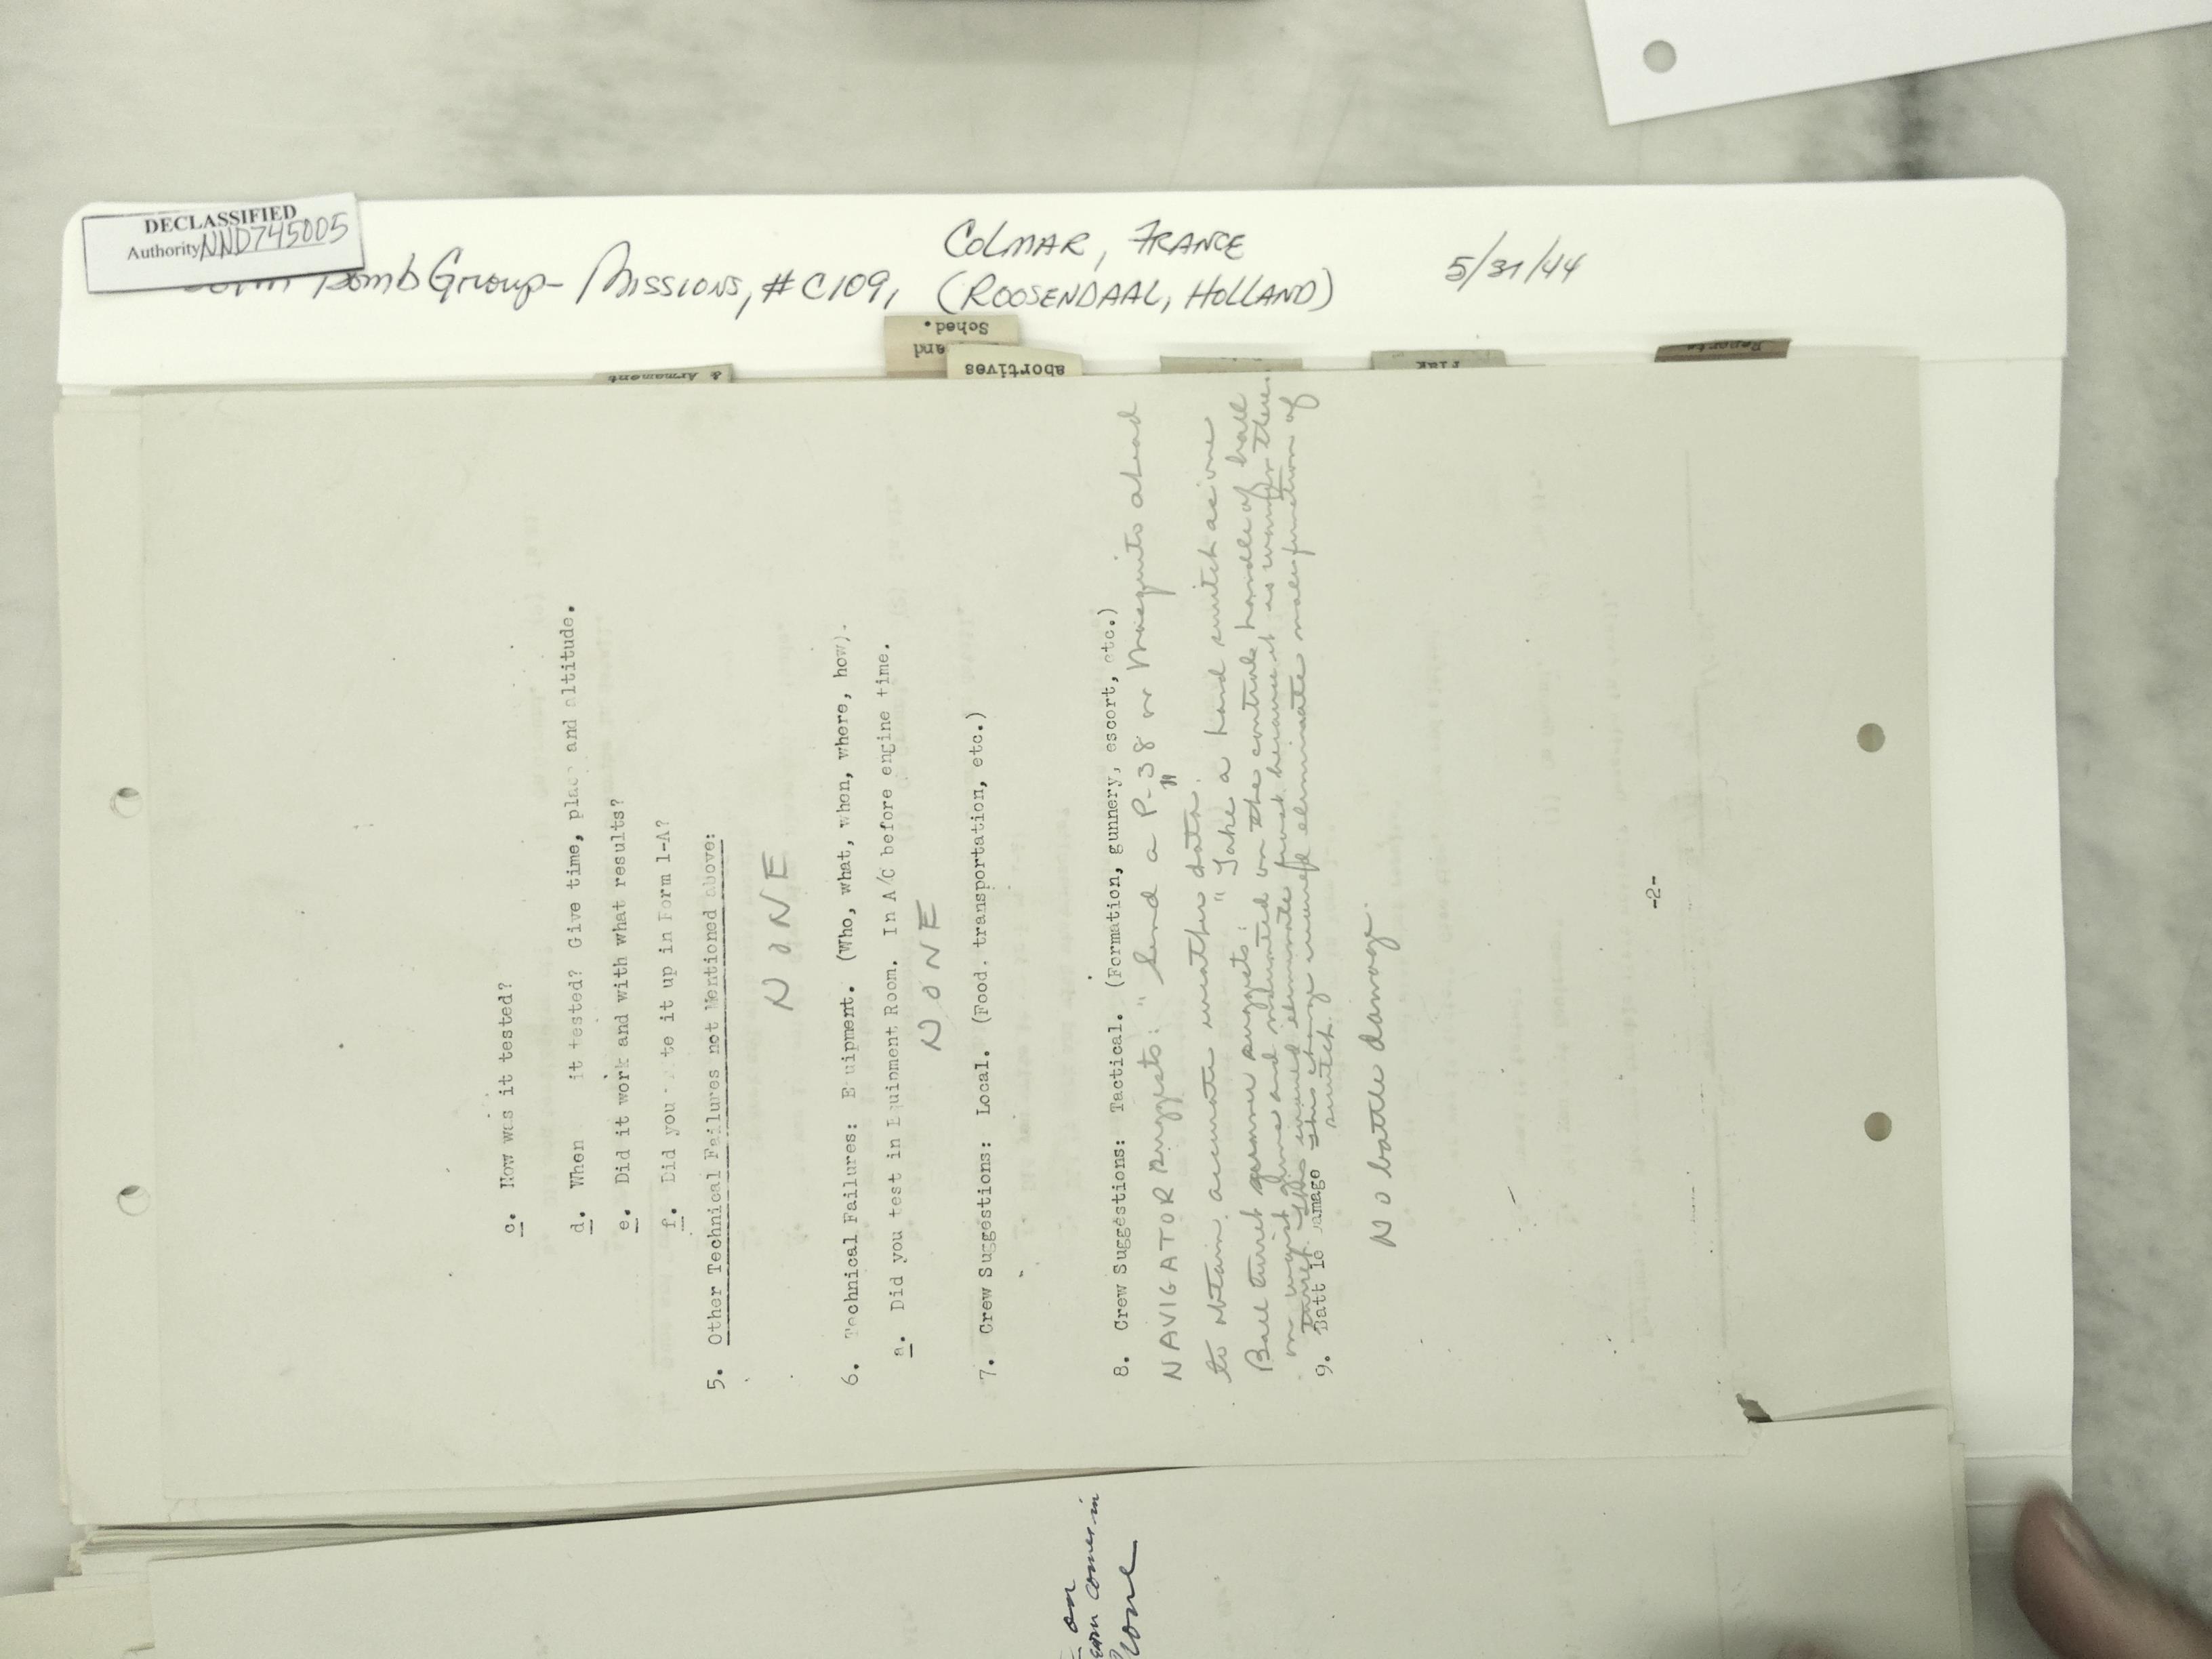 DECLASSIFIED
Authority NND745005
Bomb Group - Missions, #C109,
COLMAR, FRANCE
(ROOSENDAAL, HOLLAND)
5/31/44
Sched.
and
abortives
& Armament
Flak
Reports
c. How was it tested?
d. When it tested? Give time, place and altitude.
e. Did it work and with what results?
f. Did you te it up in Form 1-A?
5. Other Technical Failures not Mentioned above:
NONE
6. Technical Failures: E uipment. (Who, what, when, where, how).
a. Did you test in Equipment Room. In A/C before engine time.
NONE
7. Crew Suggestions: Local. (Food, transportation, etc.)
8. Crew Suggestions: Tactical. (Formation, gunnery, escort, etc.)
NAVIGATOR suggests: "Send a P-38 or Mosquito ahead
to obtain accurate weather data."
Ball turret gunner suggests: "Take a hand switch as one
on waist guns and mounted on the control handle of ball
turret. This would eliminate frost because it is warmer there.
this change would eliminate malfunction of
switch.
9. Batt le amage
No battle damage.
-2-
on
comes in